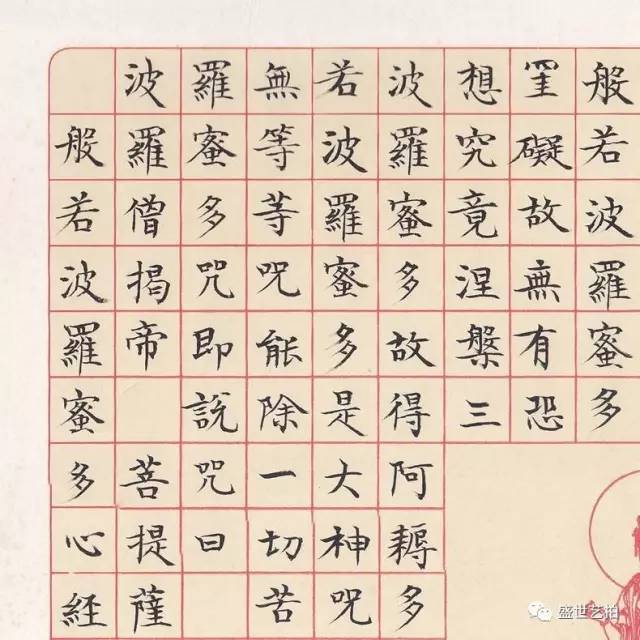 般若波羅蜜多
罣礙故無有恐
想究竟涅槃三
波羅蜜多故得阿耨多
若波羅蜜多是大神咒
無等等咒能除一切苦
羅蜜多咒即說咒曰
波羅僧揭帝 菩提薩
般若波羅蜜多心經
盛世艺拍